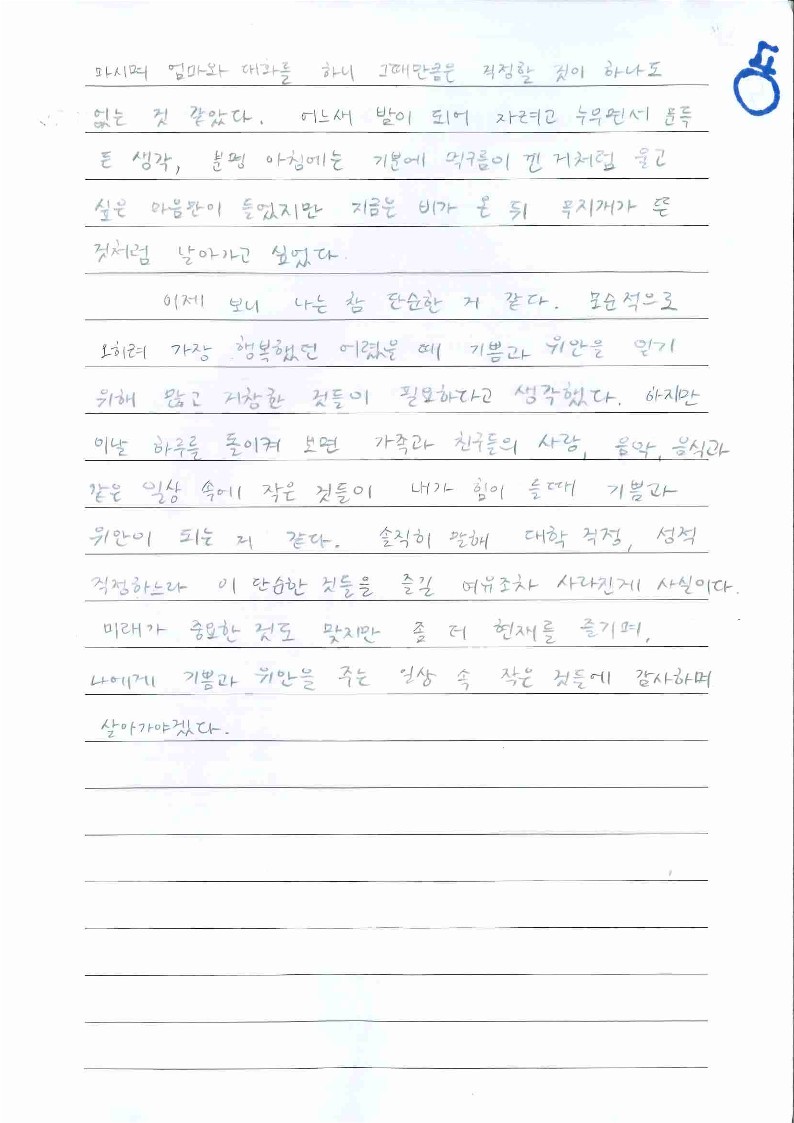 마시며 엄마와 대화를 하니 그때만큼은 걱정할 것이 하나도
없는 것 같았다. 어느새 밤이 되어 자려고 누우면서 문득
든 생각, 분명 아침에는 기분에 먹구름이 낀 거처럼 울고
싶은 마음만이 들었지만 지금은 비가 온 뒤 무지개가 뜬
것처럼 날아가고 싶었다.
이제 보니 나는 참 단순한 거 같다. 모순적으로
오히려 가장 행복했던 어렸을 때 기쁨과 위안을 얻기
위해 많고 거창한 것들이 필요하다고 생각했다. 하지만
이날 하루를 돌이켜 보면 가족과 친구들의 사랑, 음악, 음식과
같은 일상 속에 작은 것들이 내가 힘이 들때 기쁨과
위안이 되는 거 같다. 솔직히 말해 대학 걱정, 성적
걱정하느라 이 단순한 것들을 즐길 여유조차 사라진게 사실이다.
미래가 중요한 것도 맞지만 좀 더 현재를 즐기며,
나에게 기쁨과 위안을 주는 일상 속 작은 것들에 감사하며
살아가야겠다.